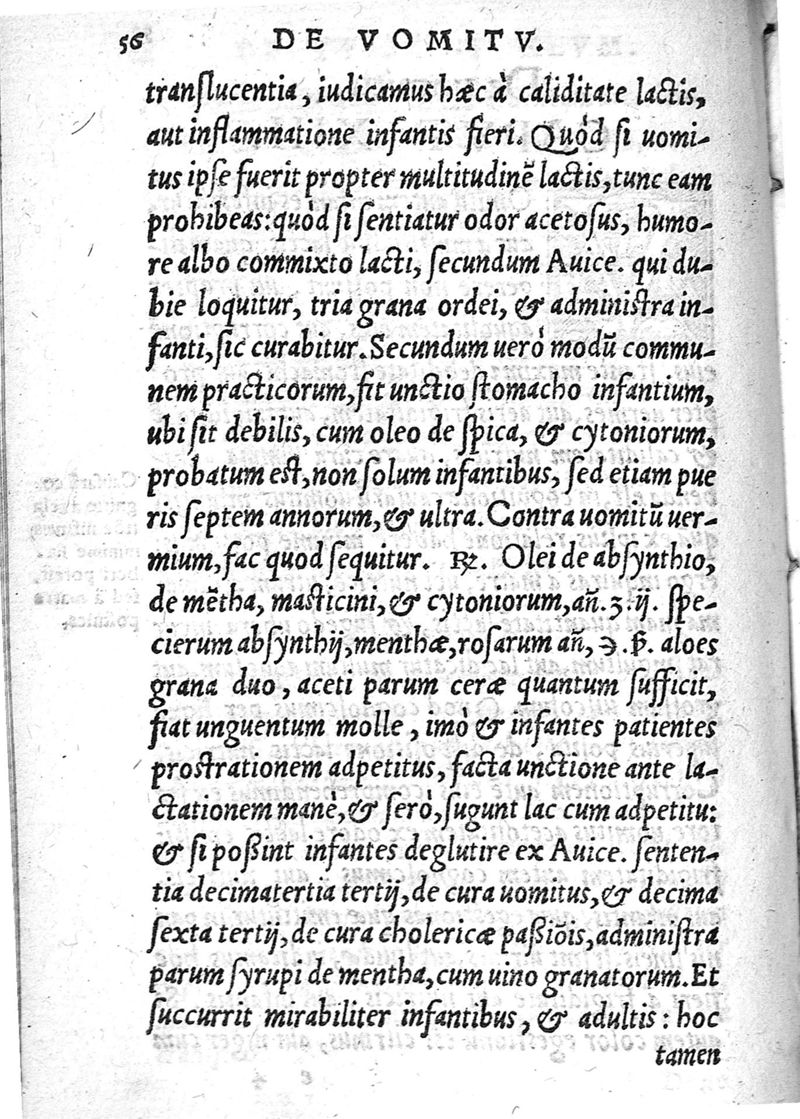 56 DE VOMITV.
translucentia, iudicamus hæc à caliditate lactis,
aut inflammatione infantis fieri. Quòd si uomi-
tus ipse fuerit propter multitudinẽ lactis, tunc eam
prohibeas: quòd si sentiatur odor acetosus, humo-
re albo commixto lacti, secundum Auice. qui du-
bie loquitur, tria grana ordei, & administra in-
fanti, sic curabitur. Secundum uerò modũ commu-
nem practicorum, fit unctio stomacho infantium,
ubi sit debilis, cum oleo de spica, & cytoniorum,
probatum est, non solum infantibus, sed etiam pue
ris septem annorum, & ultra. Contra uomitũ uer-
mium, fac quod sequitur. ℞. Olei de absynthio,
de mẽtha, masticini, & cytoniorum, añ. ʒ.ij. spe-
cierum absynthij, menthæ, rosarum añ, ℈.ß. aloes
grana duo, aceti parum ceræ quantum sufficit,
fiat unguentum molle, imò & infantes patientes
prostrationem adpetitus, facta unctione ante la-
ctationem manè, & serò, sugunt lac cum adpetitu:
& si poßint infantes deglutire ex Auice. senten-
tia decimatertia tertij, de cura uomitus, & decima
sexta tertij, de cura cholericæ paßiõis, administra
parum syrupi de mentha, cum uino granatorum. Et
succurrit mirabiliter infantibus, & adultis: hoc
tamen